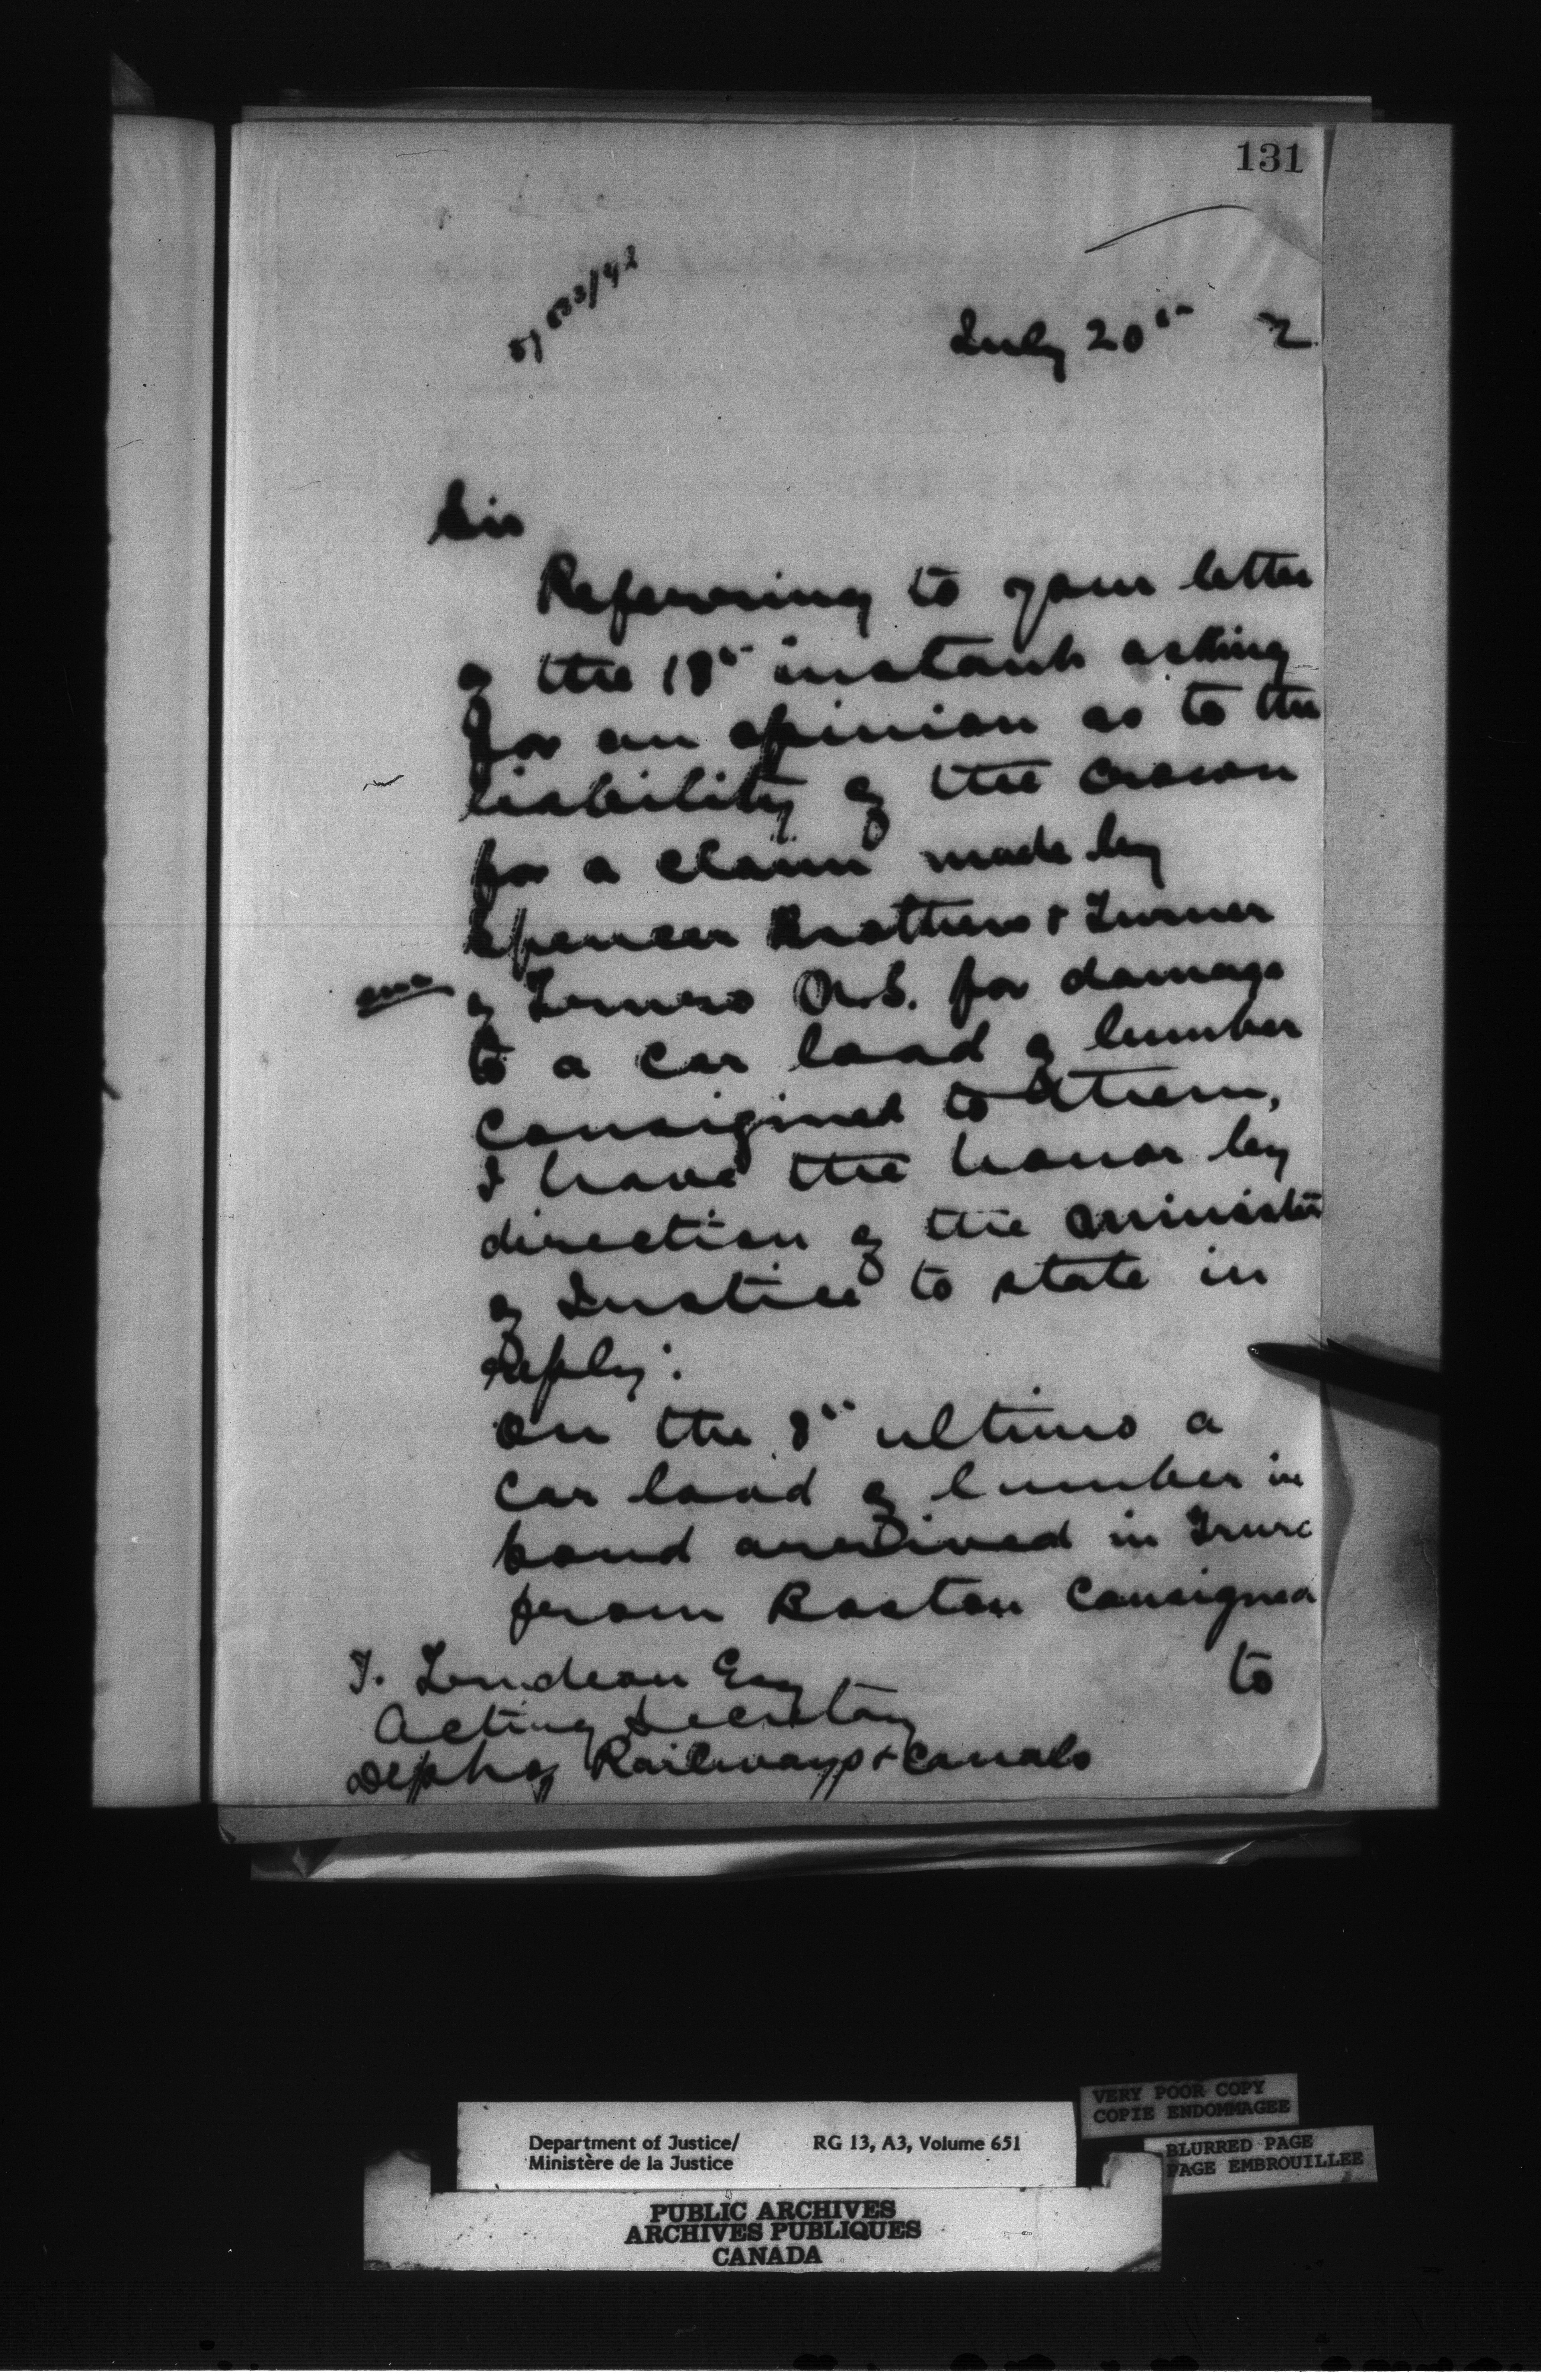 131
July 20th 2
Sir
Referring to your letter
of the 18th instant asking
for an opinion as to the
liability of the Crown
for a claim made by
Spencer Brothers & Turner
of Truro N.S. for damage
to a car load of lumber
consigned to them,
I have the honor by
direction of the Minister
of Justice to state in
reply:
On the 8th ultimo a
car load of lumber in
bond arrived in Truro
from Boston consigned
to
T. Trudeau Esq
Acting Secretary
Dept of Railways & Canals
VERY POOR COPY
COPIE ENDOMMAGEE
BLURRED PAGE
PAGE EMBROUILLEE
Department of Justice/ RG 13, A3, Volume 651
Ministère de la Justice
PUBLIC ARCHIVES
ARCHIVES PUBLIQUES
CANADA